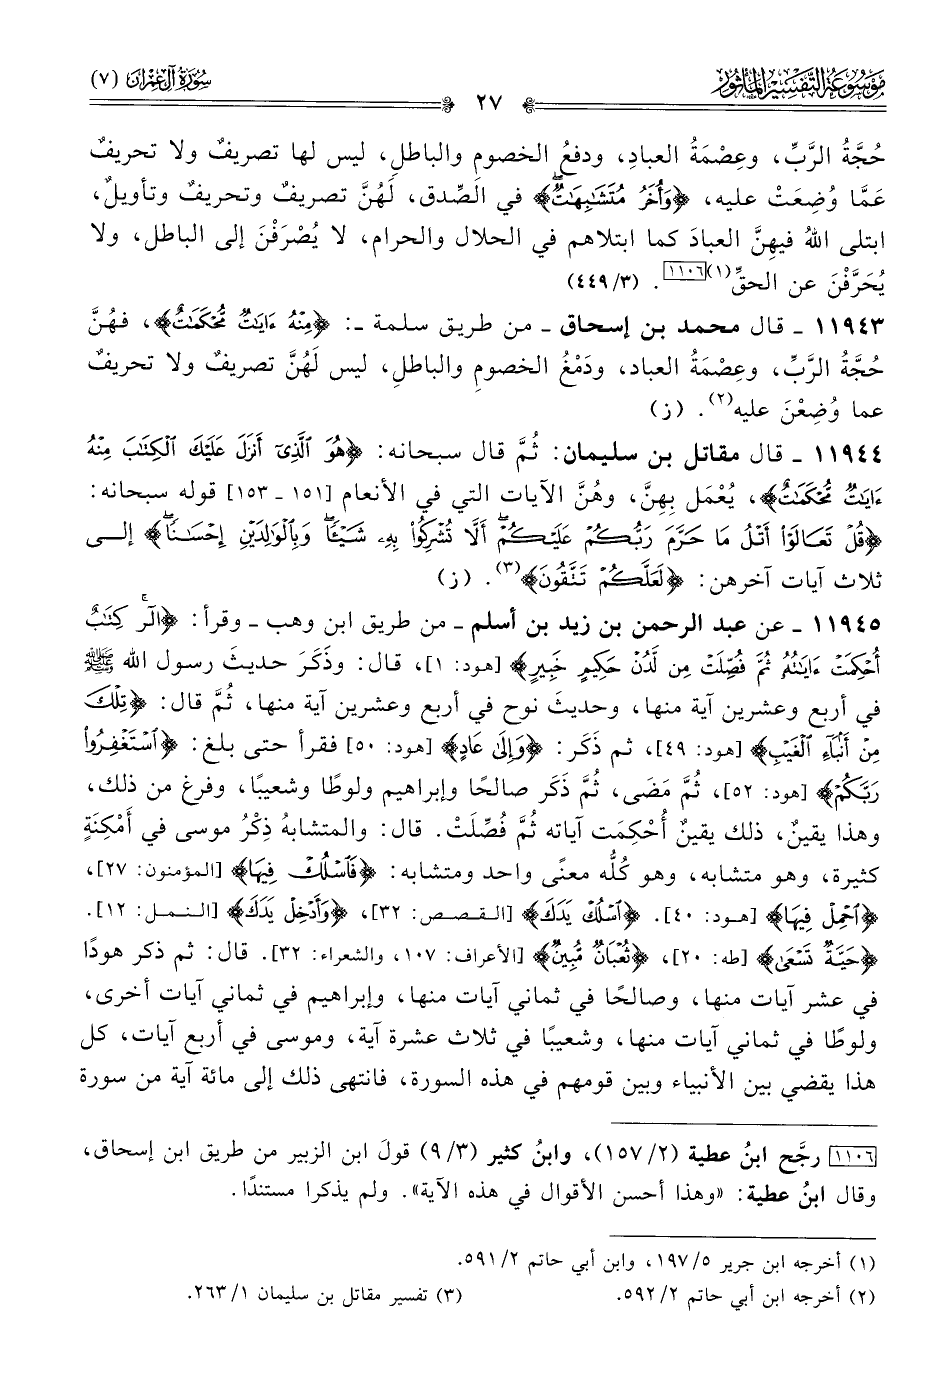 مَوْسُوعَةُ التَّفْسِيرِ المَأْثُور
٢٧
سُورَةُ آلِ عِمْرَانَ (٧)
حُجَّةُ الرَّبِّ، وعِصْمَةُ العبادِ، ودفعُ الخصومِ والباطلِ، ليس لها تصريفٌ ولا تحريفٌ
عَمَّا وُضِعَتْ عليه، ﴿وَأُخَرُ مُتَشَٰبِهَٰتٌ﴾ في الصِّدق، لَهُنَّ تصريفٌ وتحريفٌ وتأويلٌ،
ابتلى اللهُ فيهِنَّ العبادَ كما ابتلاهم في الحلال والحرام، لا يُصْرَفْنَ إلى الباطل، ولا
يُحَرَّفْنَ عن الحقِّ(١)[١١٠٦]. (٣/ ٤٤٩)
١١٩٤٣ ـ قال محمد بن إسحاق ـ من طريق سلمة ـ: ﴿مِنْهُ ءَايَٰتٌ مُّحْكَمَٰتٌ﴾، فهُنَّ
حُجَّةُ الرَّبِّ، وعِصْمَةُ العباد، ودَمْغُ الخصومِ والباطلِ، ليس لَهُنَّ تصريفٌ ولا تحريفٌ
عما وُضِعْنَ عليه(٢). (ز)
١١٩٤٤ ـ قال مقاتل بن سليمان: ثُمَّ قال سبحانه: ﴿هُوَ ٱلَّذِىٓ أَنزَلَ عَلَيْكَ ٱلْكِتَٰبَ مِنْهُ
ءَايَٰتٌ مُّحْكَمَٰتٌ﴾، يُعْمَل بِهِنَّ، وهُنَّ الآيات التي في الأنعام [١٥١ ـ ١٥٣] قوله سبحانه:
﴿قُلْ تَعَالَوْا۟ أَتْلُ مَا حَرَّمَ رَبُّكُمْ عَلَيْكُمْ ۖ أَلَّا تُشْرِكُوا۟ بِهِۦ شَيْـًٔا ۖ وَبِٱلْوَٰلِدَيْنِ إِحْسَٰنًا ۖ﴾ إلى
ثلاث آيات آخرهن: ﴿لَعَلَّكُمْ تَتَّقُونَ﴾(٣). (ز)
١١٩٤٥ ـ عن عبد الرحمن بن زيد بن أسلم ـ من طريق ابن وهب ـ وقرأ: ﴿الٓر ۚ كِتَٰبٌ
أُحْكِمَتْ ءَايَٰتُهُۥ ثُمَّ فُصِّلَتْ مِن لَّدُنْ حَكِيمٍ خَبِيرٍ﴾ [هود: ١]، قال: وذَكَرَ حديثَ رسول الله ﷺ
في أربع وعشرين آية منها، وحديثَ نوح في أربع وعشرين آية منها، ثُمَّ قال: ﴿تِلْكَ
مِنْ أَنۢبَآءِ ٱلْغَيْبِ﴾ [هود: ٤٩]، ثم ذَكَر: ﴿وَإِلَىٰ عَادٍ﴾ [هود: ٥٠] فقرأ حتى بلغ: ﴿ٱسْتَغْفِرُوا۟
رَبَّكُمْ﴾ [هود: ٥٢]، ثُمَّ مَضَى، ثُمَّ ذَكَر صالحًا وإبراهيم ولوطًا وشعيبًا، وفرغ من ذلك،
وهذا يقينٌ، ذلك يقينٌ أُحْكِمَت آياته ثُمَّ فُصِّلَتْ. قال: والمتشابهُ ذِكْرُ موسى في أَمْكِنَةٍ
كثيرة، وهو متشابه، وهو كُلُّه معنًى واحد ومتشابه: ﴿فَٱسْلُكْ فِيهَا﴾ [المؤمنون: ٢٧]،
﴿ٱحْمِلْ فِيهَا﴾ [هود: ٤٠]. ﴿ٱسْلُكْ يَدَكَ﴾ [القصص: ٣٢]، ﴿وَأَدْخِلْ يَدَكَ﴾ [النمل: ١٢].
﴿حَيَّةٌ تَسْعَىٰ﴾ [طه: ٢٠]، ﴿ثُعْبَانٌ مُّبِينٌ﴾ [الأعراف: ١٠٧، والشعراء: ٣٢]. قال: ثم ذكر هودًا
في عشر آيات منها، وصالحًا في ثماني آيات منها، وإبراهيم في ثماني آيات أخرى،
ولوطًا في ثماني آيات منها، وشعيبًا في ثلاث عشرة آية، وموسى في أربع آيات، كل
هذا يقضي بين الأنبياء وبين قومهم في هذه السورة، فانتهى ذلك إلى مائة آية من سورة
[١١٠٦] رجَّح ابنُ عطية (٢/ ١٥٧)، وابنُ كثير (٣/ ٩) قولَ ابن الزبير من طريق ابن إسحاق،
وقال ابنُ عطية: «وهذا أحسن الأقوال في هذه الآية». ولم يذكرا مستندًا.
(١) أخرجه ابن جرير ٥/ ١٩٧، وابن أبي حاتم ٢/ ٥٩١.
(٢) أخرجه ابن أبي حاتم ٢/ ٥٩٢. (٣) تفسير مقاتل بن سليمان ١/ ٢٦٣.